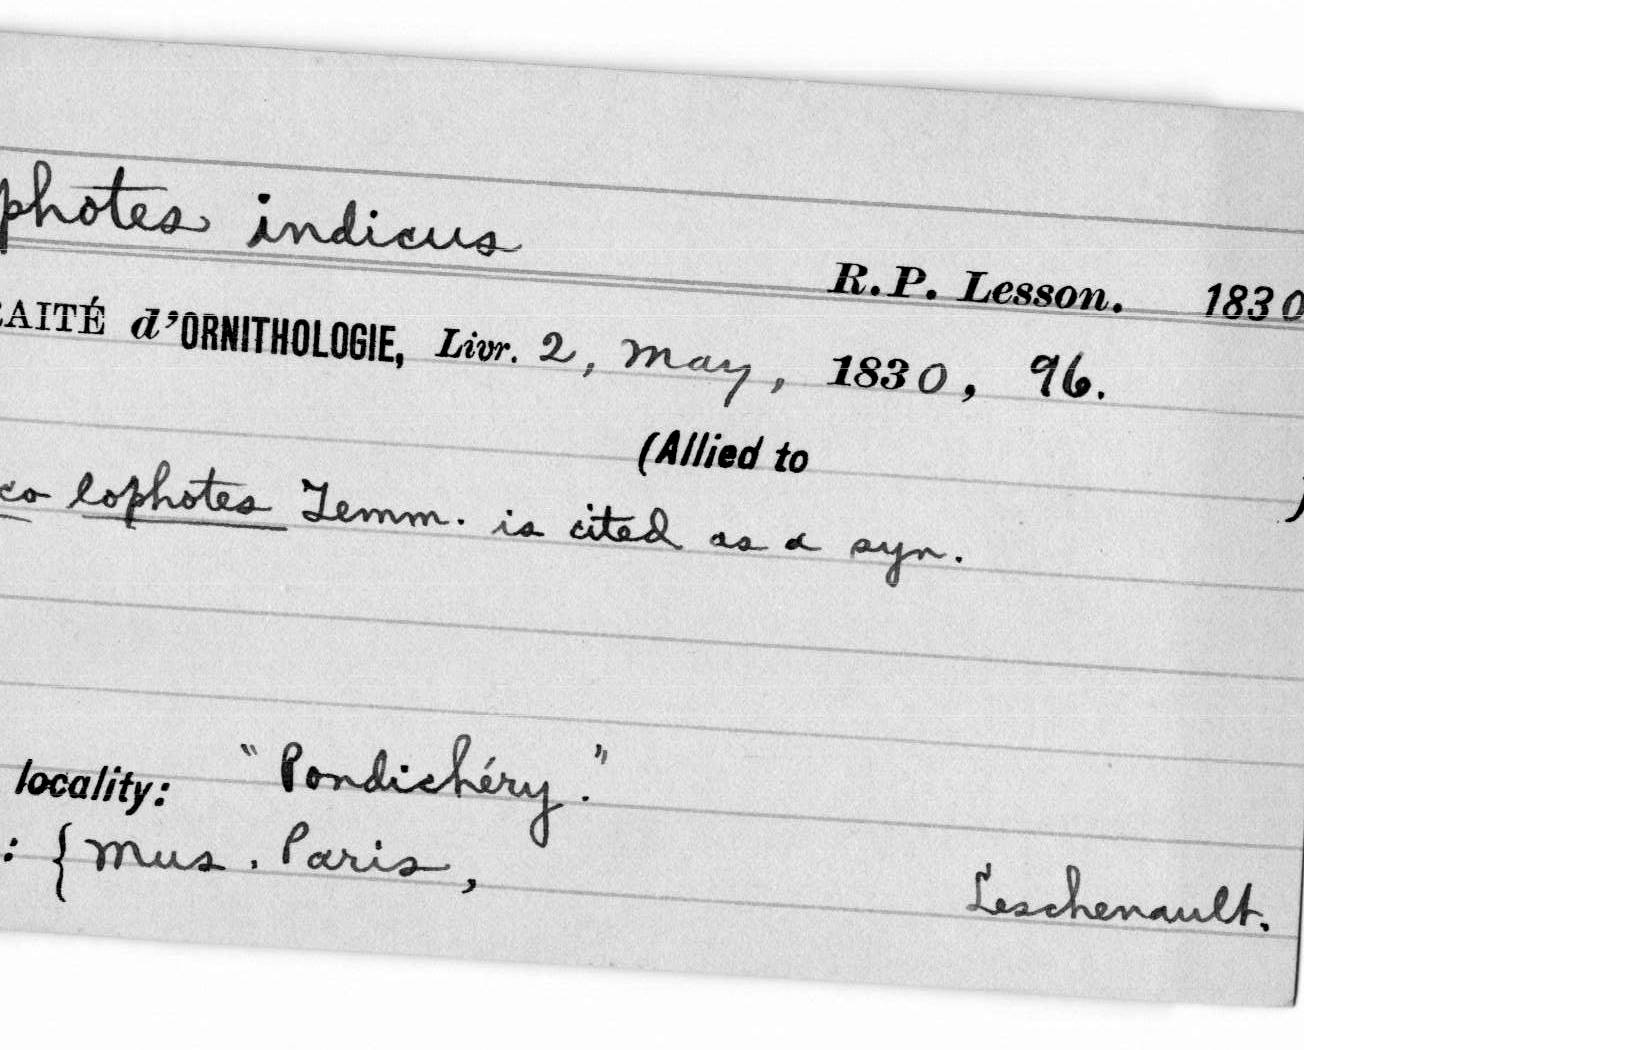 photes indicus
R.P. Lesson. 1830
AITÉ d'ORNITHOLOGIE, Livr. 2, May, 1830, 96.
(Allied to )
co lophotes Temm. is cited as a syn.
locality: "Pondichéry."
: { Mus. Paris, Leschenault.